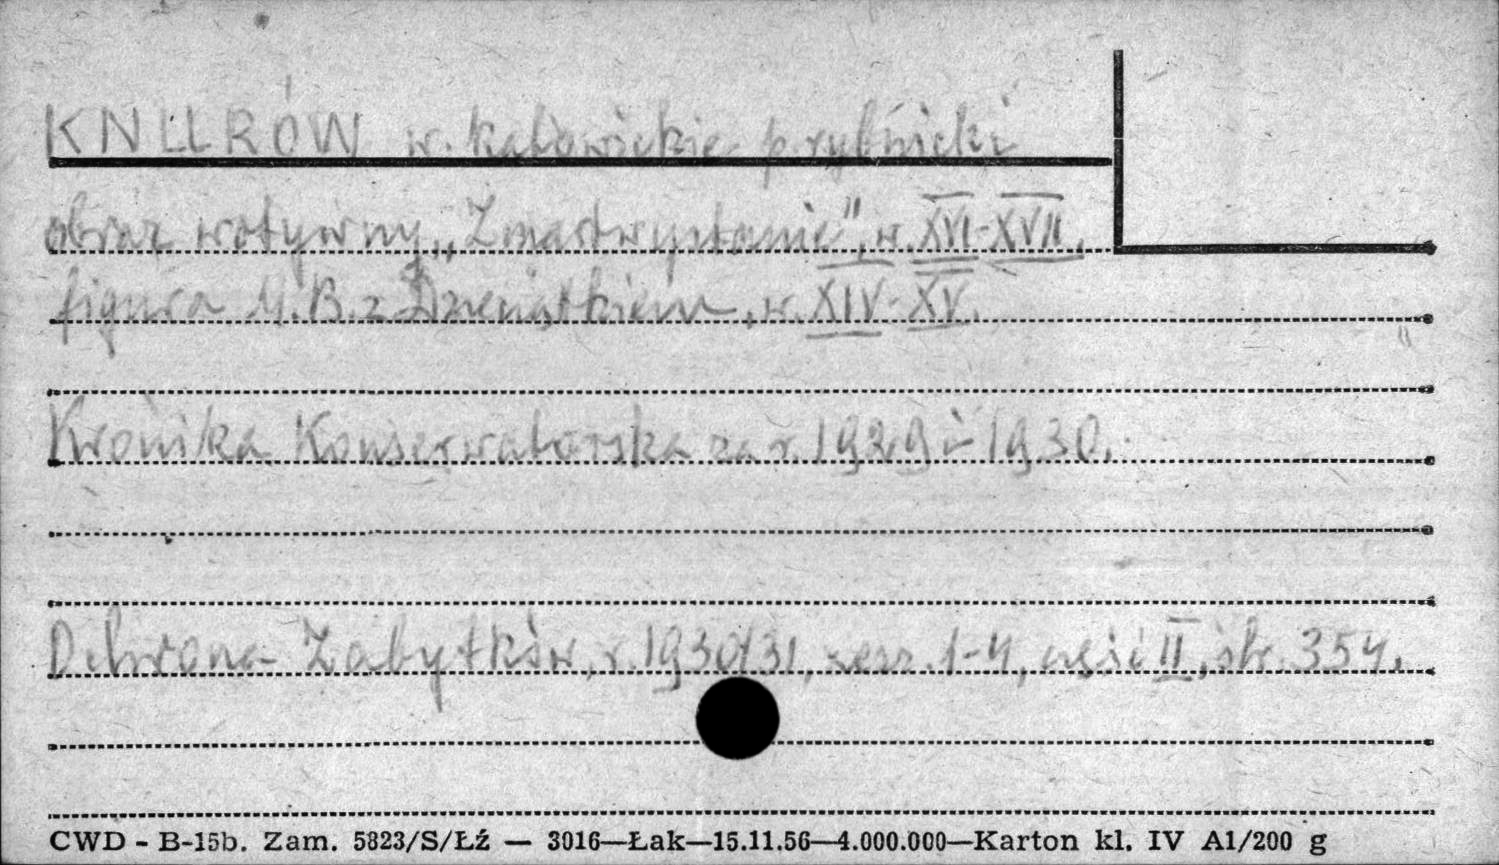 KNURÓW w. katowickie p. rybnicki
obraz wotywny „Zmartwychstanie", w. XVI-XVII.
figura M.B. z Dzieciątkiem, w. XIV-XV.
Kronika Konserwatorska za r. 1929 i 1930.
Ochrona Zabytków, r. 1930/31, zesz. 1-4, część II, str. 354.
CWD - B-15b. Zam. 5823/S/Łź — 3016—Łak—15.11.56—4.000.000—Karton kl. IV A1/200 g